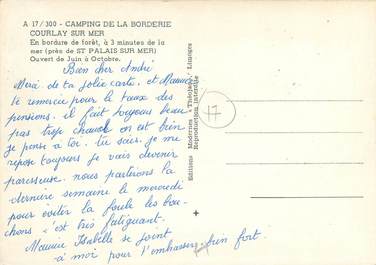 A 17/300 - CAMPING DE LA BORDERIE
COURLAY SUR MER
En bordure de forêt, à 3 minutes de la
mer (près de ST PALAIS SUR MER)
Ouvert de Juin à Octobre.
Bien cher André
Merci de ta jolie carte, et Maurice
te remercie pour le taux des
pensions. il fait toujours beau
pas trop chaud on est bien
je pense à toi. tu sais je me
repose toujours je vais devenir
paresseuse. nous partirons la
dernière semaine le mercredi
pour éviter la foule les bou-
chons c'est très fatiguant.
Maurice Isabelle se joint
à moi pour t'embrasser bien fort.
Editions Modernes "Théojac", Limoges
Reproduction interdite
17